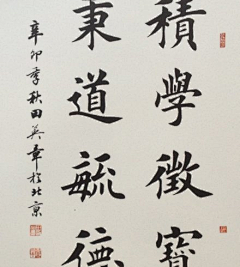 積學徵寶
秉道毓德
辛卯季秋田英章於北京